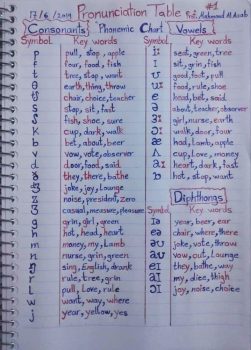 17/6/2019 Pronunciation Table #1
Consonants Phonemic Chart Vowels
Symbol Key words Symbol Key words
p pull, stop, apple iː seat, green, tree
f four, food, fish ɪ sit, grin, fish
t tree, stop, want ʊ good, foot, pull
θ earth, thing, throw uː food, rule, fruit
tʃ chair, choice, teacher e head, bet, said
s stop, sit, fast ə about, teacher, observer
ʃ fish, shoe, sure ɜː girl, nurse, earth
k cup, dark, walk ɔː walk, door, four
b bet, about, beer æ had, lamp, apple
v vow, vote, observer ʌ cup, love, money
d door, food, said ɑː heart, dark, fast
ð they, there, bathe ɒ hot, stop, want
dʒ joke, joy, Lounge
z noise, president, zero Diphthongs
ʒ casual, measure, pleasure Symbol Key words
g grin, girl, green ɪə year, beer, ear
h hot, head, heart eə chair, where, there
m money, my, Lamb əʊ joke, vote, throw
n nurse, grin, green aʊ vow, out, Lounge
ŋ sing, English, drank eɪ they, bathe, way
r rule, tree, grin aɪ my, dice, thigh
L pull, Love, rule ɔɪ joy, noise, choice
w want, way, where
j year, yellow, yes